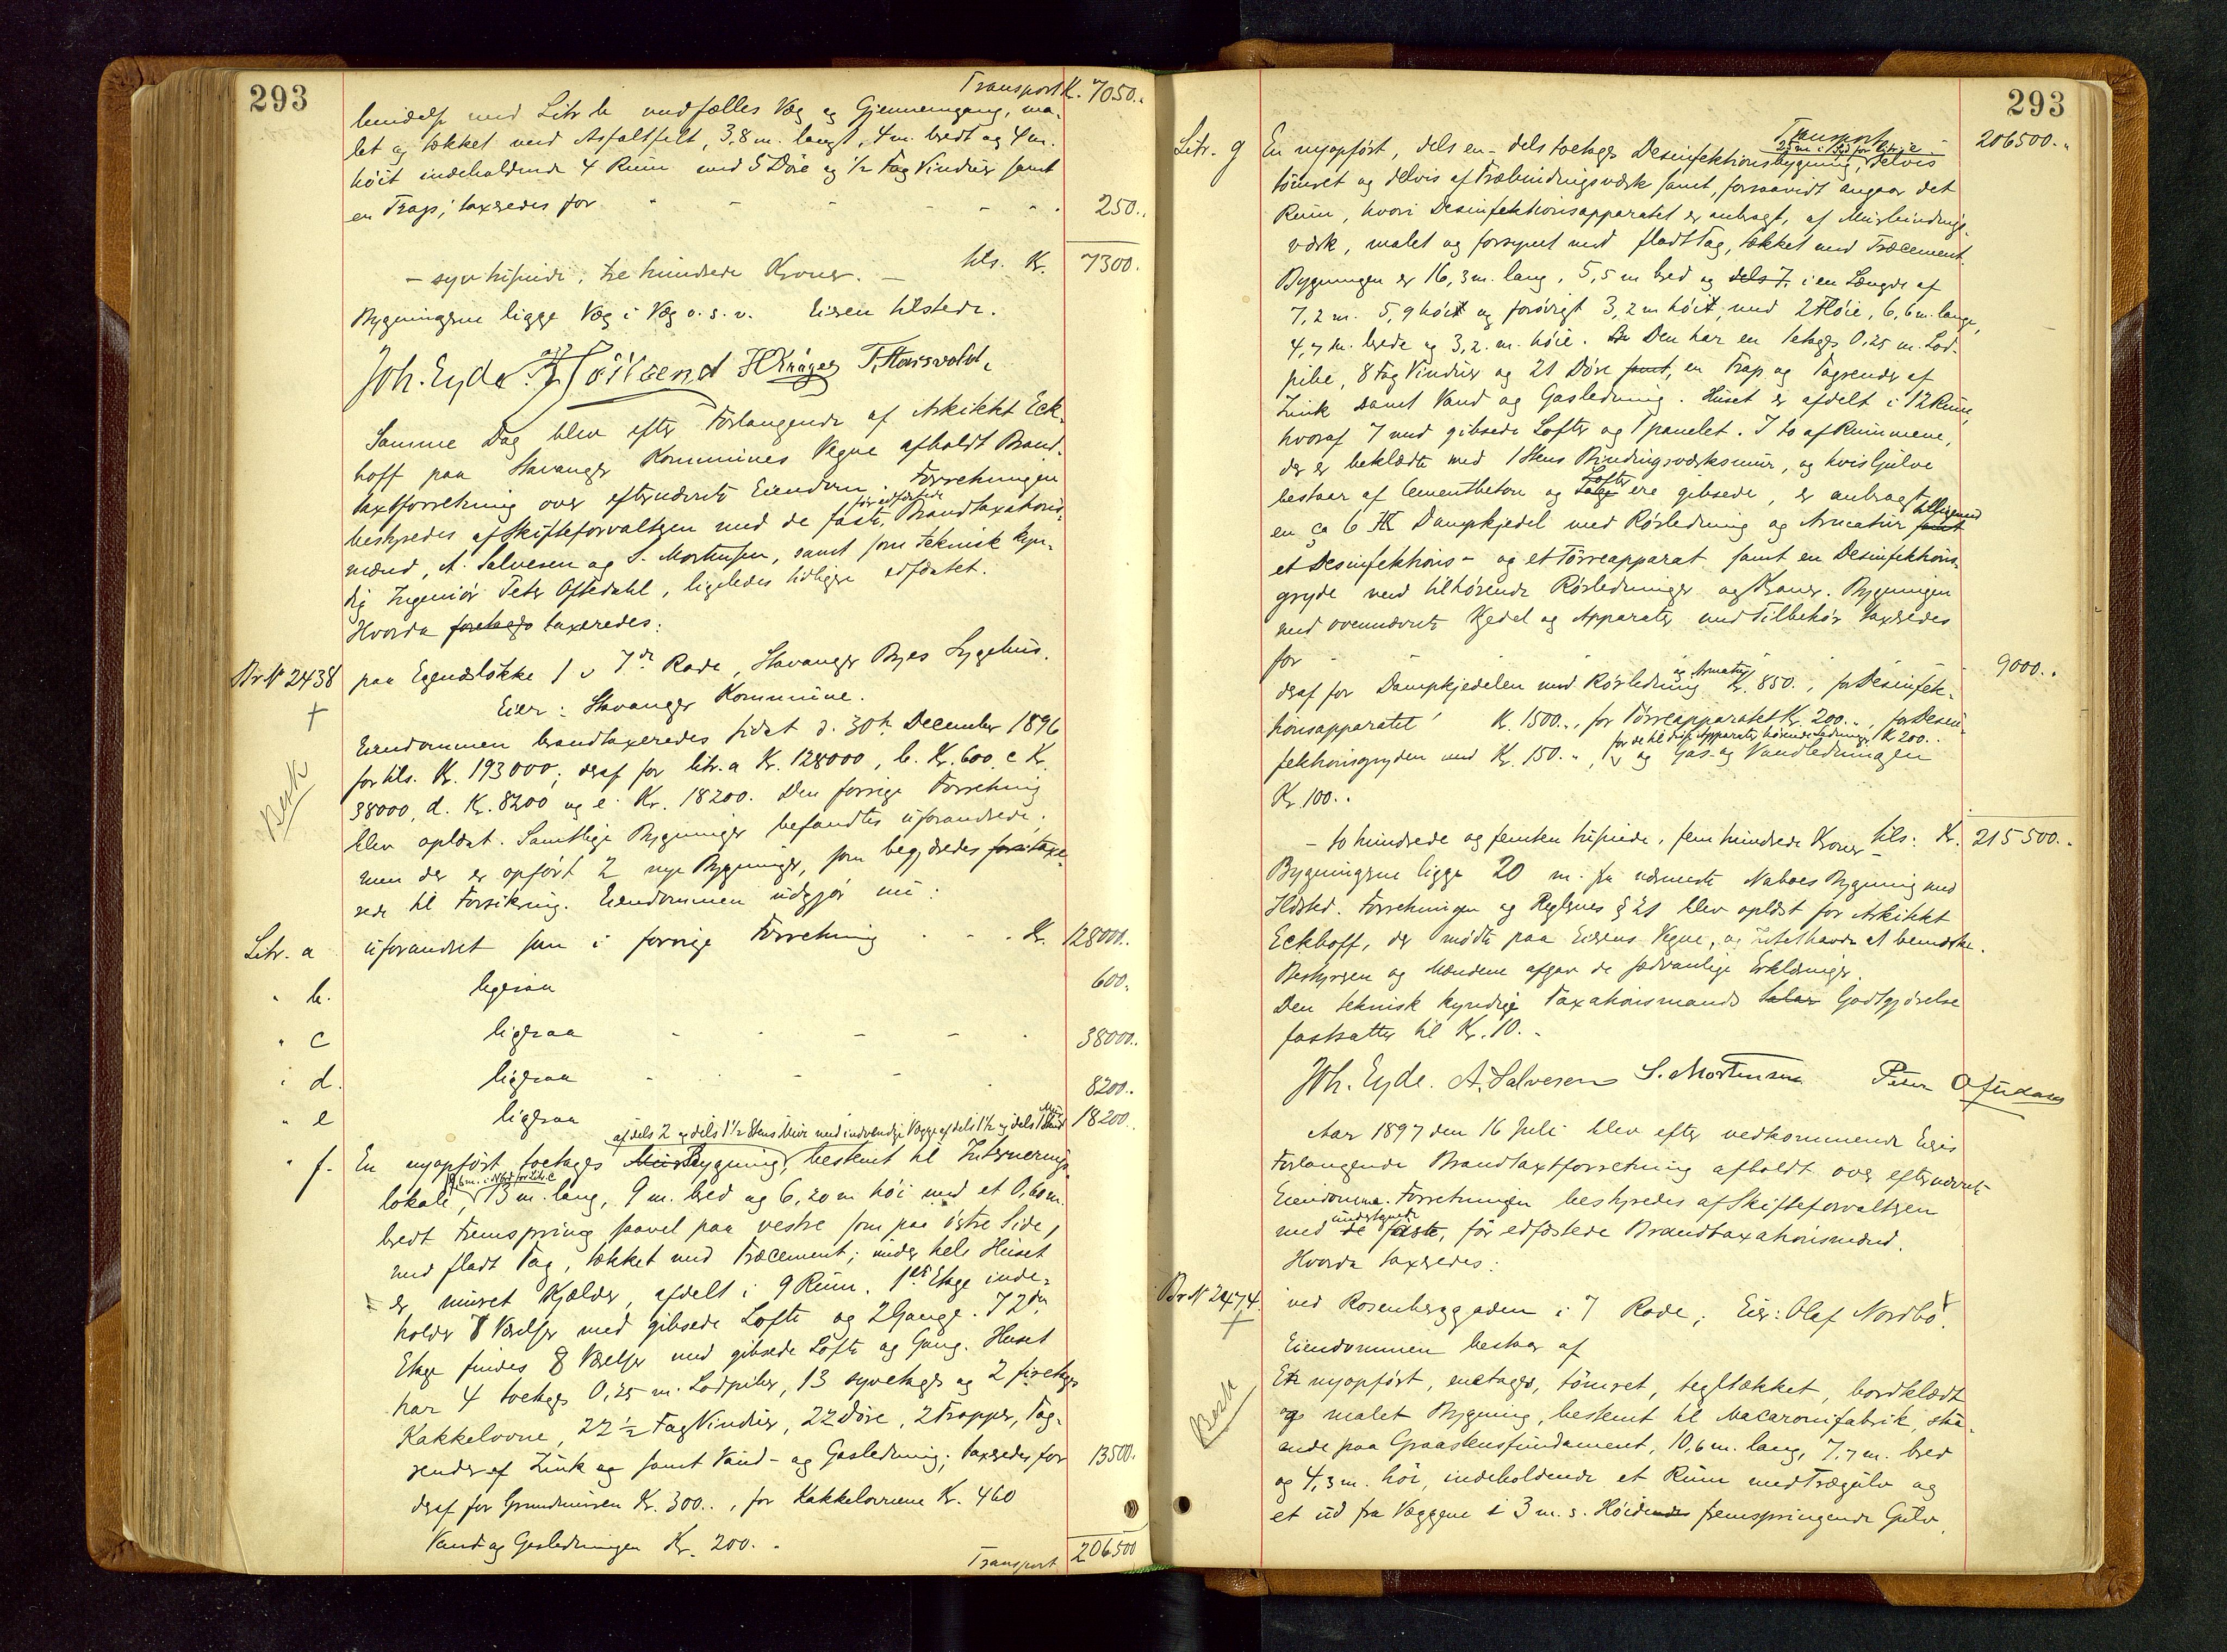 293
Transport K. 7050..
bindelse med Litr. b med fælles Væg og Gjennemgang, ma-
let og tækket med Asfaltfilt, 3,8 m. langt, 4 m. bredt og 4 m.
höit indeholdende 4 Rum med 5 Döre og 1/2 Fag Vinduer samt
en Trap; taxeredes for - - - - - 250..
- syv tusinde, tre hundrede Kroner. - tils. Kr. 7300.
Bygningerne ligge Væg i Væg o. s. v. Eieren tilstede.
Joh. Eyde. H Kröger T. Thorsvaldt
Samme Dag blev efter Forlangende af Arkitekt Eck-
hoff paa Stavanger Kommunes Vegne afholdt Brand-
taxtforretning over efternævnte Eiendom. Forretningen
för edfæstede
bestyredes af Skifteforvalteren med de faste, Brandtaxations-
mænd, A. Salvesen og S. Mortensen, samt som teknisk kyn-
dig Ingeniör Peter Oftedahl, ligeledes tidligere edfæstet.
Hvorda foretoges taxeredes:
Br. № 2438 paa Egenæslökke 1 v 7de Rode, Stavanger Byes Sygehus.
Eier: Stavanger Kommune.
Eiendommen brandtaxeredes sidst d. 30te December 1896
for tils. Kr. 193000; deraf for litr. a Kr. 128000, b. Kr. 600. c Kr.
38000, d. Kr. 8200 og e. Kr. 18200. Den forrige Forretning
blev oplæst. Samtlige Bygninger befandtes uforandrede,
Besk
men der er opfört 2 nye Bygninger, som begjæredes forsi taxe-
rede til Forsikring. Eiendommen udgjör nu:
Litr. a uforandret som i forrige Forretning - - - Kr. 128000..
" b. ligesaa 600.
" c ligesaa - - - - 38000..
" d. ligesaa - - - 8200..
" e ligesaa 18200.
af dels 2 og dels 1 1/2 Stens Mur med indvendige Vægge af dels 1 1/2 og dels 1 Stens Mur
" f. En nyopfört toetages Mur Bygning, bestemt til Internerings-
lokale, 13 m. lang, 9 m. bred og 6,20 m höi med et 0,60 m.
bredt Fremspring saavel paa vestre som paa östre Side,
med fladt Tag, tækket med Træcement; under hele Huset
er muret Kjælder, afdelt i 9 Rum. 1ste Etage inde-
holder 8 Værelser med gibsede Lofte og 2 Gange. I 2den
Etage findes 8 Værelser med gibsede Lofte og Gang. Huset
har 4 toetages 0,25 m. Lodpiber, 13 syvetages og 2 firetages
Kakkelovne, 22 1/2 Fag Vinduer, 22 Döre, 2 Trapper, Tag-
render af Zink og samt Vand- og Gasledning; taxeredes for 13500.
deraf for Grundmuren Kr. 300.., for Kakkelovnene Kr. 460
Vand og Gasledningen Kr. 200..
Transport 206500
293
Transport 206500..
25 m i Syd for litr. c
Litr. g En nyopfört, dels en- dels toetages Desinfektionsbygning, delvis
tömret og delvis af Træbindingsværk samt, forsaavidt angaar det
Rum, hvori Desinfektionsapparatet er anbragt, af Murbindings-
værk, malet og forsynet med fladt Tag, tækket med Træcement.
Bygningen er 16,3 m. lang, 5,5 m bred og dels 7, i en Længde af
7,2 m. 5,9 höit og forövrigt 3,2 m höit, med 2 Flöie, 6,6 m. lange,
4,7 m. brede og 3,2. m. höie. Den har en 1etages 0,25 m. Lod-
pibe, 8 Fag Vinduer og 21 Döre samt, en Trap og Tagrender af
Zink samt Vand og Gasledning. Huset er afdelt i 12 Rum,
hvoraf 7 med gibsede Lofter og 1 panelet. I to af Rummene,
der er beklædte med 1 Stens Bindingsværksmur, og hvis Gulve
Lofter
bestaar af Cementbeton og Tage ere gibsede, er anbragt
tilligemed
en ca 6 HK Dampkjedel med Rörledning og Armatur samt
et Desinfektions- og et Törreapparat samt en Desinfektions-
gryde med tilhörende Rörledninger og Kraner. Bygningen
med ovennævnte Kjedel og Apparater med Tilbehör taxeredes
for - 9000..
og Armatur
deraf for Dampkjedelen med Rörledning Kr. 850., for Desinfek-
tionsapparatet Kr. 1500.., for Törreapparatet Kr. 200.., for Desin-
for de til disse Apparater hörende Ledninger Kr. 200..
fektionsgryden med Kr. 150.., og Gas- og Vandledningen
Kr. 100..
- to hundrede og femten tusinde, fem hundrede Kroner - tils: Kr. 215500..
Bygningerne ligge 20 m. fra nærmeste Naboes Bygning med
Ildsted. Forretningen og Reglernes § 21 blev oplæst for Arkitekt
Eckhoff, der mödte paa Eierens Vegne, og Intet havde at bemærke.
Bestyreren og Mændene afgav de sædvanlige Erklæringer.
Den teknisk kyndige Taxationsmands Salær Godtgjörelse
fastsattes til Kr. 10.-
Joh. Eyde. A. Salvesen S. Mortensen Peter Oftedahl
Aar 1897 den 16 Juli blev efter vedkommende Eiers
Forlangende Brandtaxtforretning afholdt over efternævnte
Eiendomme. Forretningen bestyredes af Skifteforvalteren
undertegnede
med de faste, för edfæstede Brandtaxationsmænd.
Hvorda taxeredes:
Br. № 2474. ved Rosenberggaden i 7 Rode; Eier: Olaf Nordbö.
Eiendommen bestaar af
Besk
En nyopfört, enetages, tömret, tegltækket, bordklædt
og malet Bygning, bestemt til Macaronifabrik, staa-
ende paa Graastensfundament, 10,6 m. lang, 7,7 m. bred
og 4,3 m. höi, indeholdende et Rum med Trægulv og
et ud fra Væggene i 3 m. s. Höide fremspringende Gulv,